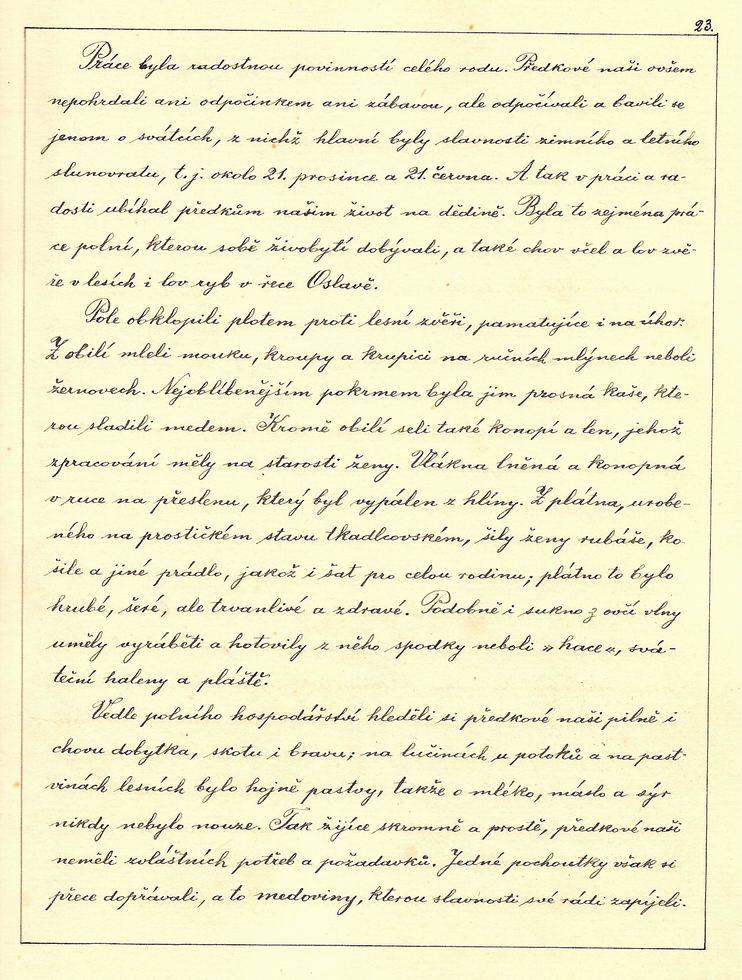 23.
Práce byla radostnou povinností celého rodu. Předkové naši ovšem
nepohrdali ani odpočinkem ani zábavou, ale odpočívali a bavili se
jenom o svátcích, z nichž hlavní byly slavnosti zimního a letního
slunovratu, t. j. okolo 21. prosince a 21. června. A tak v práci a ra-
dosti ubíhal předkům našim život na dědině. Byla to zejména prá-
ce polní, kterou sobě živobytí dobývali, a také chov včel a lov zvě-
ře v lesích i lov ryb v řece Oslavě.
Pole obklopili plotem proti lesní zvěři, pamatujíce i na úhor.
Z obilí mleli mouku, kroupy a krupici na ručních mlýnech neboli
žernovech. Nejoblíbenějším pokrmem byla jim prosná kaše, kte-
rou sladili medem. Kromě obilí seli také konopí a len, jehož
zpracování měly na starosti ženy. Vlákna lněná a konopná
v ruce na přeslenu, který byl vypálen z hlíny. Z plátna, urobe-
ného na prostičkém stavu tkadlcovském, šily ženy rubáše, ko
šile a jiné prádlo, jakož i šat pro celou rodinu; plátno to bylo
hrubé, šeré, ale trvanlivé a zdravé. Podobně i sukno z ovčí vlny
uměly vyráběti a hotovily z něho spodky neboli »hace«, svá-
teční haleny a pláště.
Vedle polního hospodářství hleděli si předkové naši pilně i
chovu dobytka, skotu i bravu; na lučinách u potoků a na past-
vinách lesních bylo hojně pastvy, takže o mléko, máslo a sýr
nikdy nebylo nouze. Tak žijíce skromně a prostě, předkové naši
neměli zvláštních potřeb a požadavků. Jedné pochoutky však si
přece dopřávali, a to medoviny, kterou slavnosti své rádi zapíjeli.